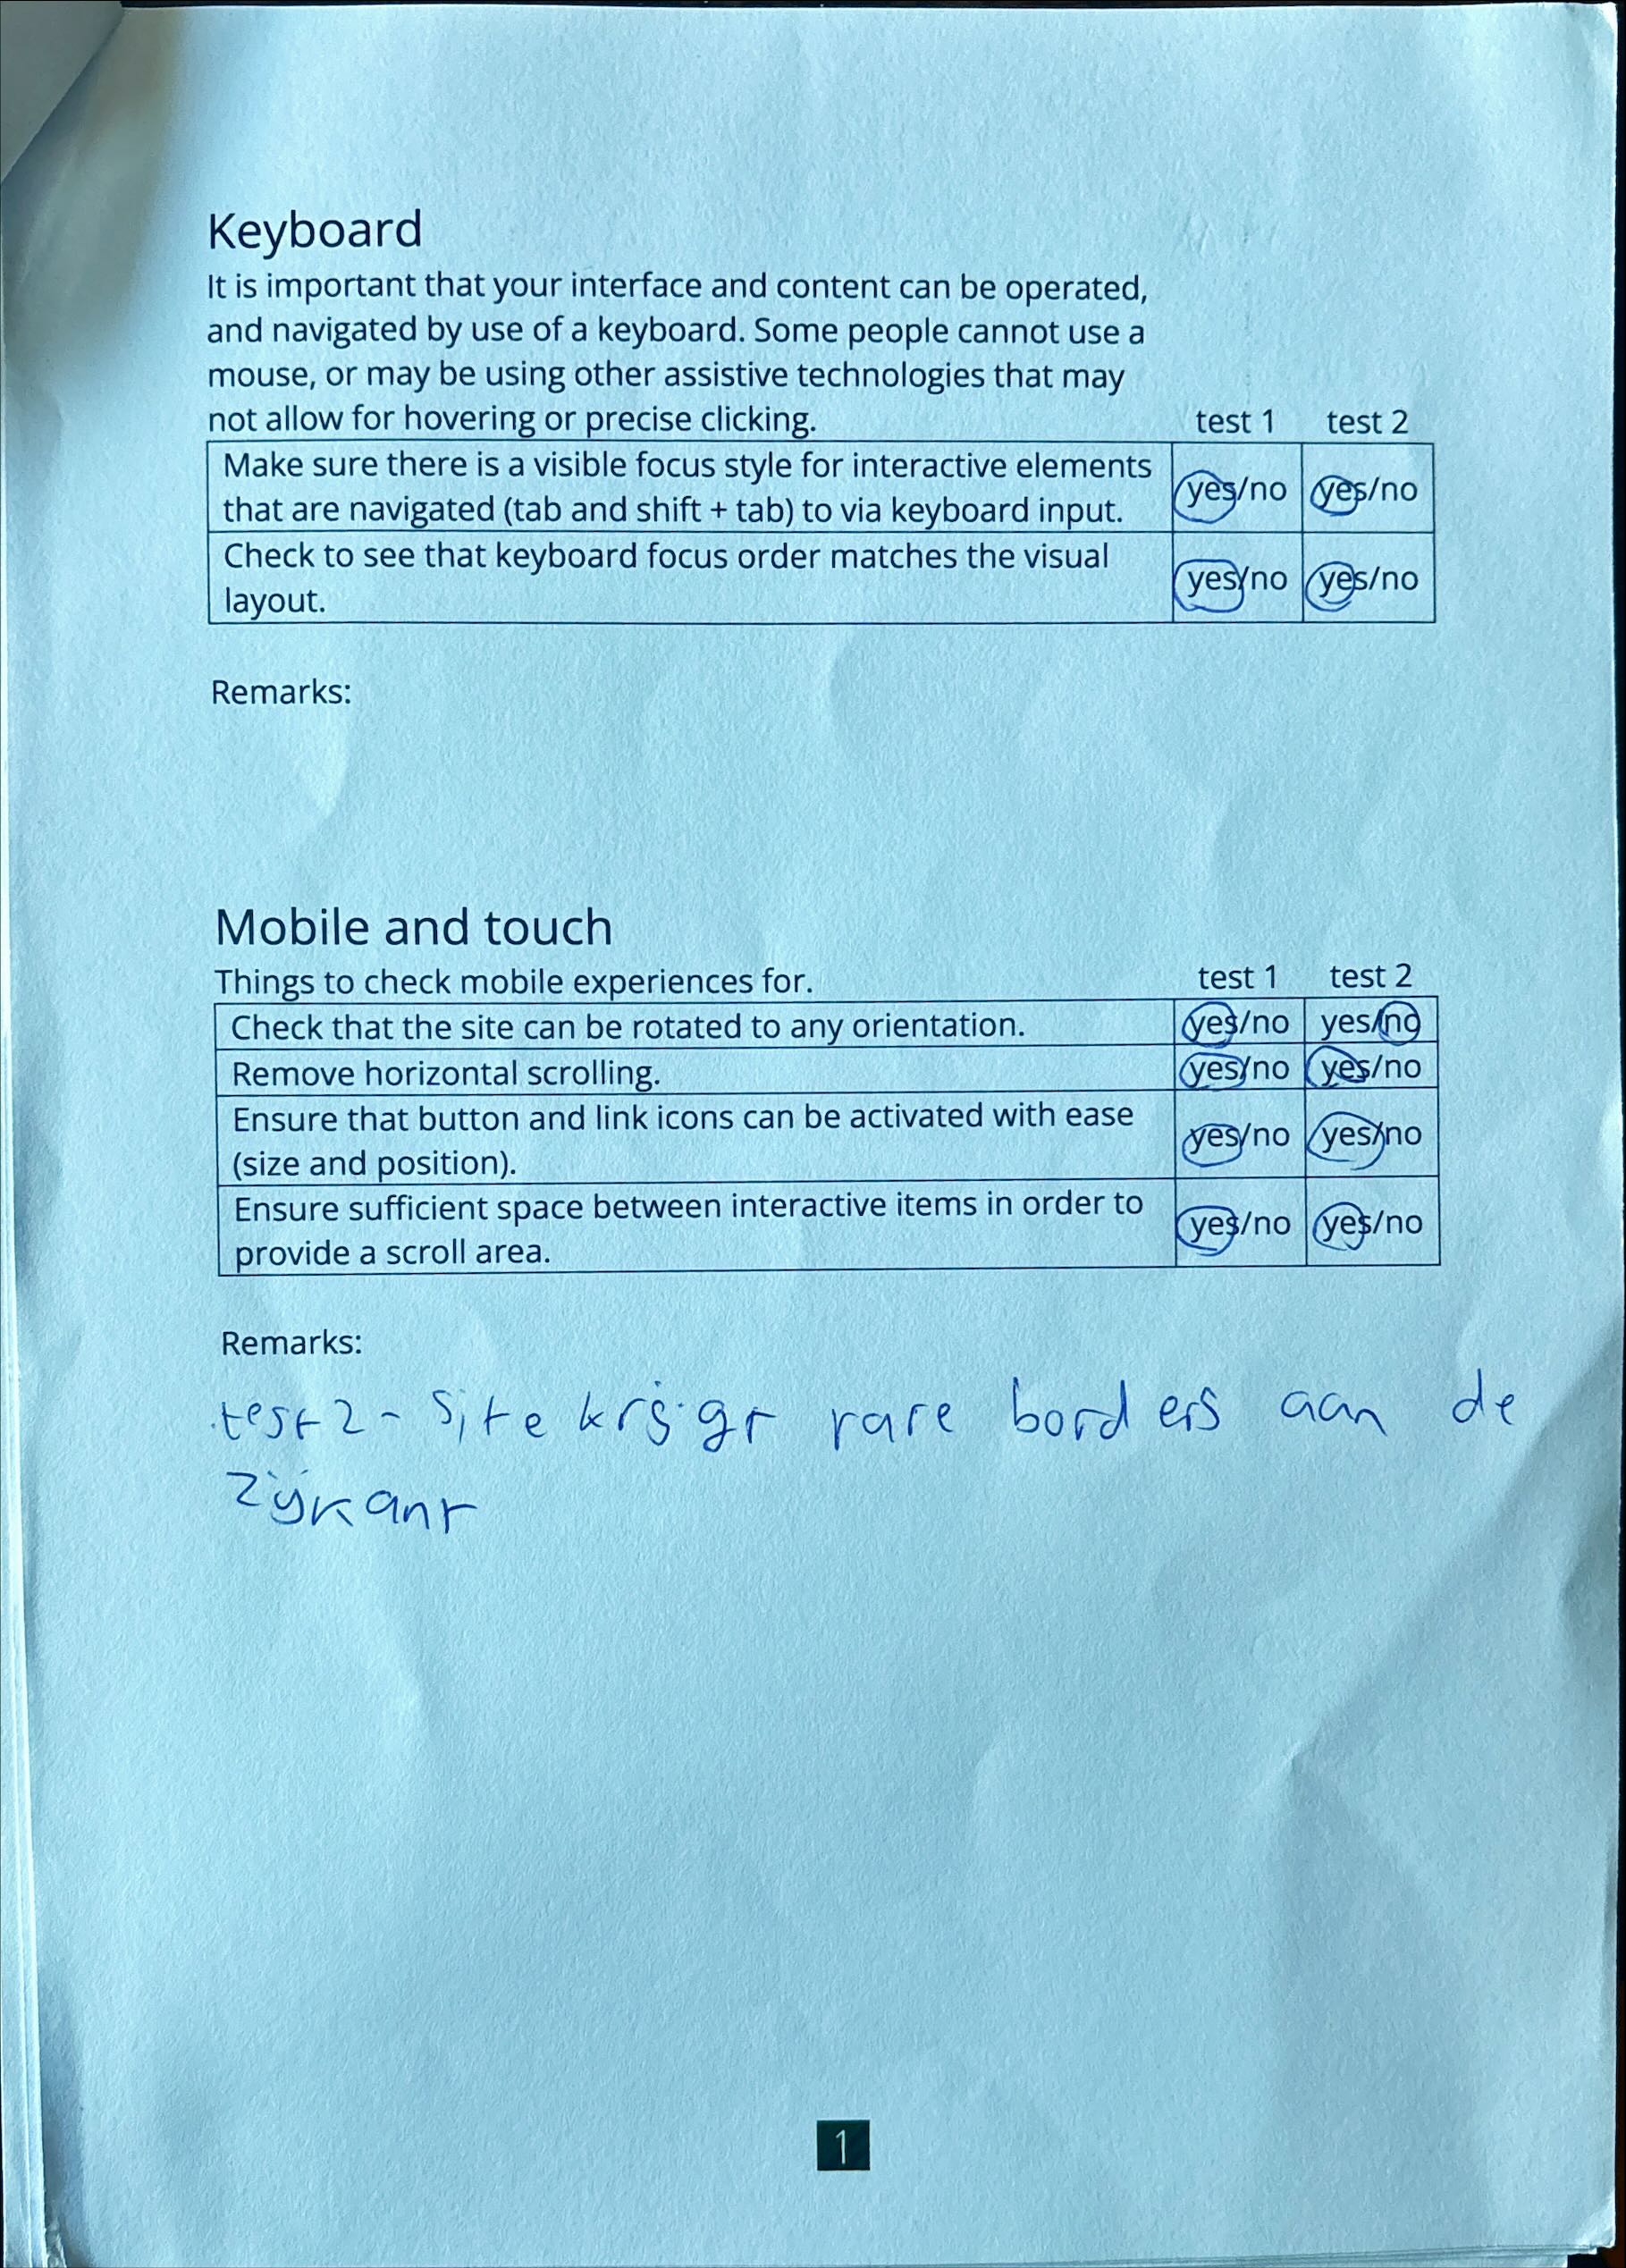 Keyboard
It is important that your interface and content can be operated,
and navigated by use of a keyboard. Some people cannot use a
mouse, or may be using other assistive technologies that may
not allow for hovering or precise clicking.
test 1 test 2
Make sure there is a visible focus style for interactive elements
that are navigated (tab and shift + tab) to via keyboard input.
yes/no yes/no
Check to see that keyboard focus order matches the visual
layout.
yes/no yes/no
Remarks:
Mobile and touch
Things to check mobile experiences for.
test 1 test 2
Check that the site can be rotated to any orientation. yes/no yes/no
Remove horizontal scrolling. yes/no yes/no
Ensure that button and link icons can be activated with ease
(size and position).
yes/no yes/no
Ensure sufficient space between interactive items in order to
provide a scroll area.
yes/no yes/no
Remarks:
test 2 - Site krijgt rare borders aan de
zijkant
1